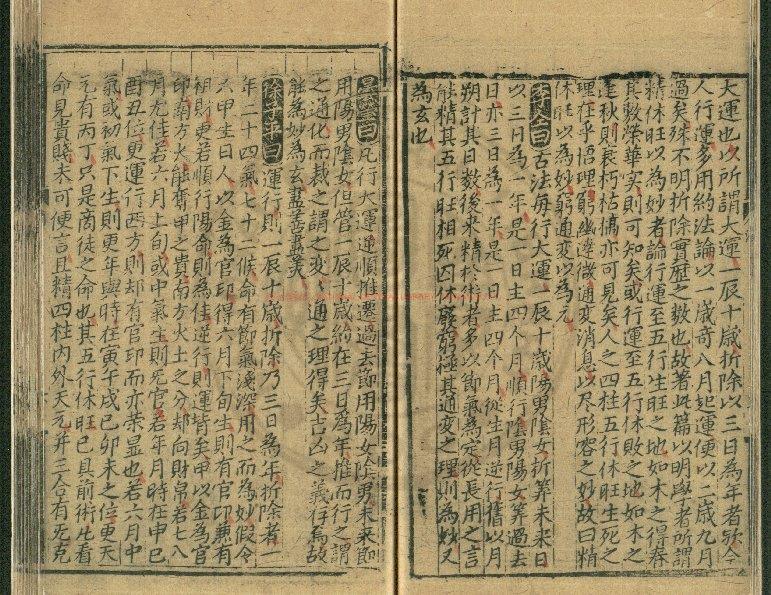 大運也以所謂大運一辰十歲折除以三日為年者歟今
人行運多用約法論以一歲奇八月起運便以二歲九月
過矣殊不明折除實歷之數也故著此篇以明學者所謂
精休旺以為妙者論行運至五行生旺之地如木之得春
其數榮華實則可知矣或行運至五行休敗之地如木之
逢秋則衰朽枯槁亦可見矣人之四柱五行休旺生死之
理在乎悟理窮幽達微通變消息以尽形容之妙故曰精
休旺以為妙窮通變以為元
李仝曰古法每行大運一辰十歲陽男陰女折筭未來日
以三日為一年是一日主四个月順行陰男陽女筭過去
日亦三日為一年是一日主四个月從生月逆行舊以月
朔計其日數後來精於術者多以節氣為定從長用之言
能精其五行旺相死囚休廢窮極其通變之理則為妙又
為玄也
曇瑩曰凡行大運逆順推遷過去節用陽女陰男未來節
用陽男陰女但管一辰十歲約在三日為年推而行之謂
之通化而裁之謂之變變通之理得矣吉凶之義存焉故
能為妙為玄盡善盡美
徐子平曰運行則一辰十歲折除乃三日為年折除者一
年二十四氣七十二候命有節氣淺深用之而為妙假令
六甲生日人以金為官印得六月下旬生則有官印兼有
祖財更若順行陽命則為佳逆行則運背矣甲以金為官
印南方火能奪甲之貴南方火土之分却向財帛若七八
月尤佳若六月上旬或中氣生則旡官若年月時在申巳
酉丑位更運行西方則却有官印而亦榮显也若六月中
氣或初氣下生則更年與時在寅午戌巳卯未之位更天
元有丙丁只是商徒之命也其五行休旺巳具前術凡看
命見貴賤未可便言且精四柱內外天元并三合有旡克